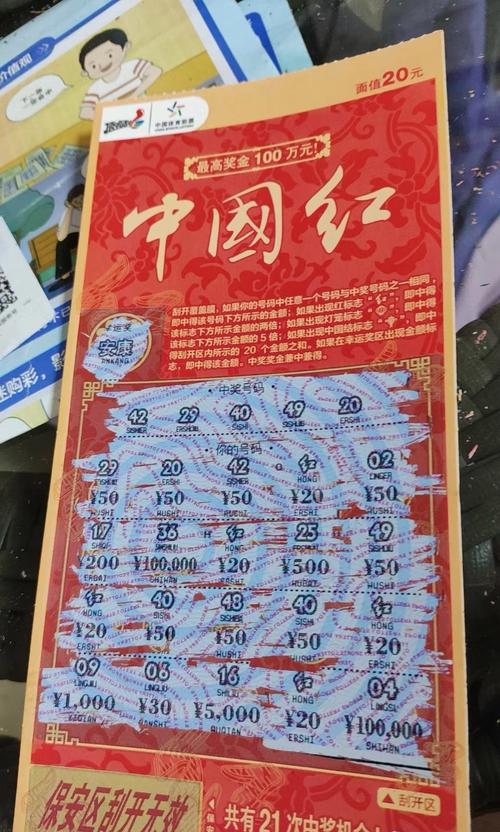 价值观
下一张
面值20元
顶呱刮
中国体育彩票
CHINA SPORTS LOTTERY
最高奖金 100 万元!
中國红
刮开覆盖膜,如果你的号码中任意一个号码与中奖号码之一相同,
即中得该号码下方所示的金额;如果出现红标志“红”,即中得
该标志下方所示金额的两倍;如果出现灯笼标志
该标志下方所示金额的 5 倍;如果出现中国结标志
得刮开区内所示的 20 个金额之和。如果在幸运奖区出现金额标
志,即中得该金额。中奖奖金兼中兼得。
幸运奖
安康
ANKANG
中奖号码
42 29 40 49 20
SISHIER ERSHIJIU SISHI SISHIJIU ERSHI
你的号码
29 20 42 红 02
ERSHI HONG LINGER
¥50 ¥50 ¥50 ¥20 ¥50
WUSHI WUSHI WUSHI ERSHI WUSHI
17 36 红 25 49
HONG
¥200 ¥100,000 ¥20 ¥500 ¥50
ERBAI SHIWAN ERSHI WUBAI WUSHI
红 40 48 40 红
HONG SISHI SISHI HONG
¥20 ¥50 ¥50 ¥50 ¥20
ERSHI WUSHI WUSHI WUSHI ERSHI
09 06 16 红 04
LINGJIU LINGLIU SHILIU HONG LINGSI
¥1,000 ¥30 ¥5,000 ¥20 ¥100,000
YIQIAN SANSHI WUQIAN ERSHI SHIWAN
刮开区
保安区刮开无效
共有21次中奖机会
迷购彩,影